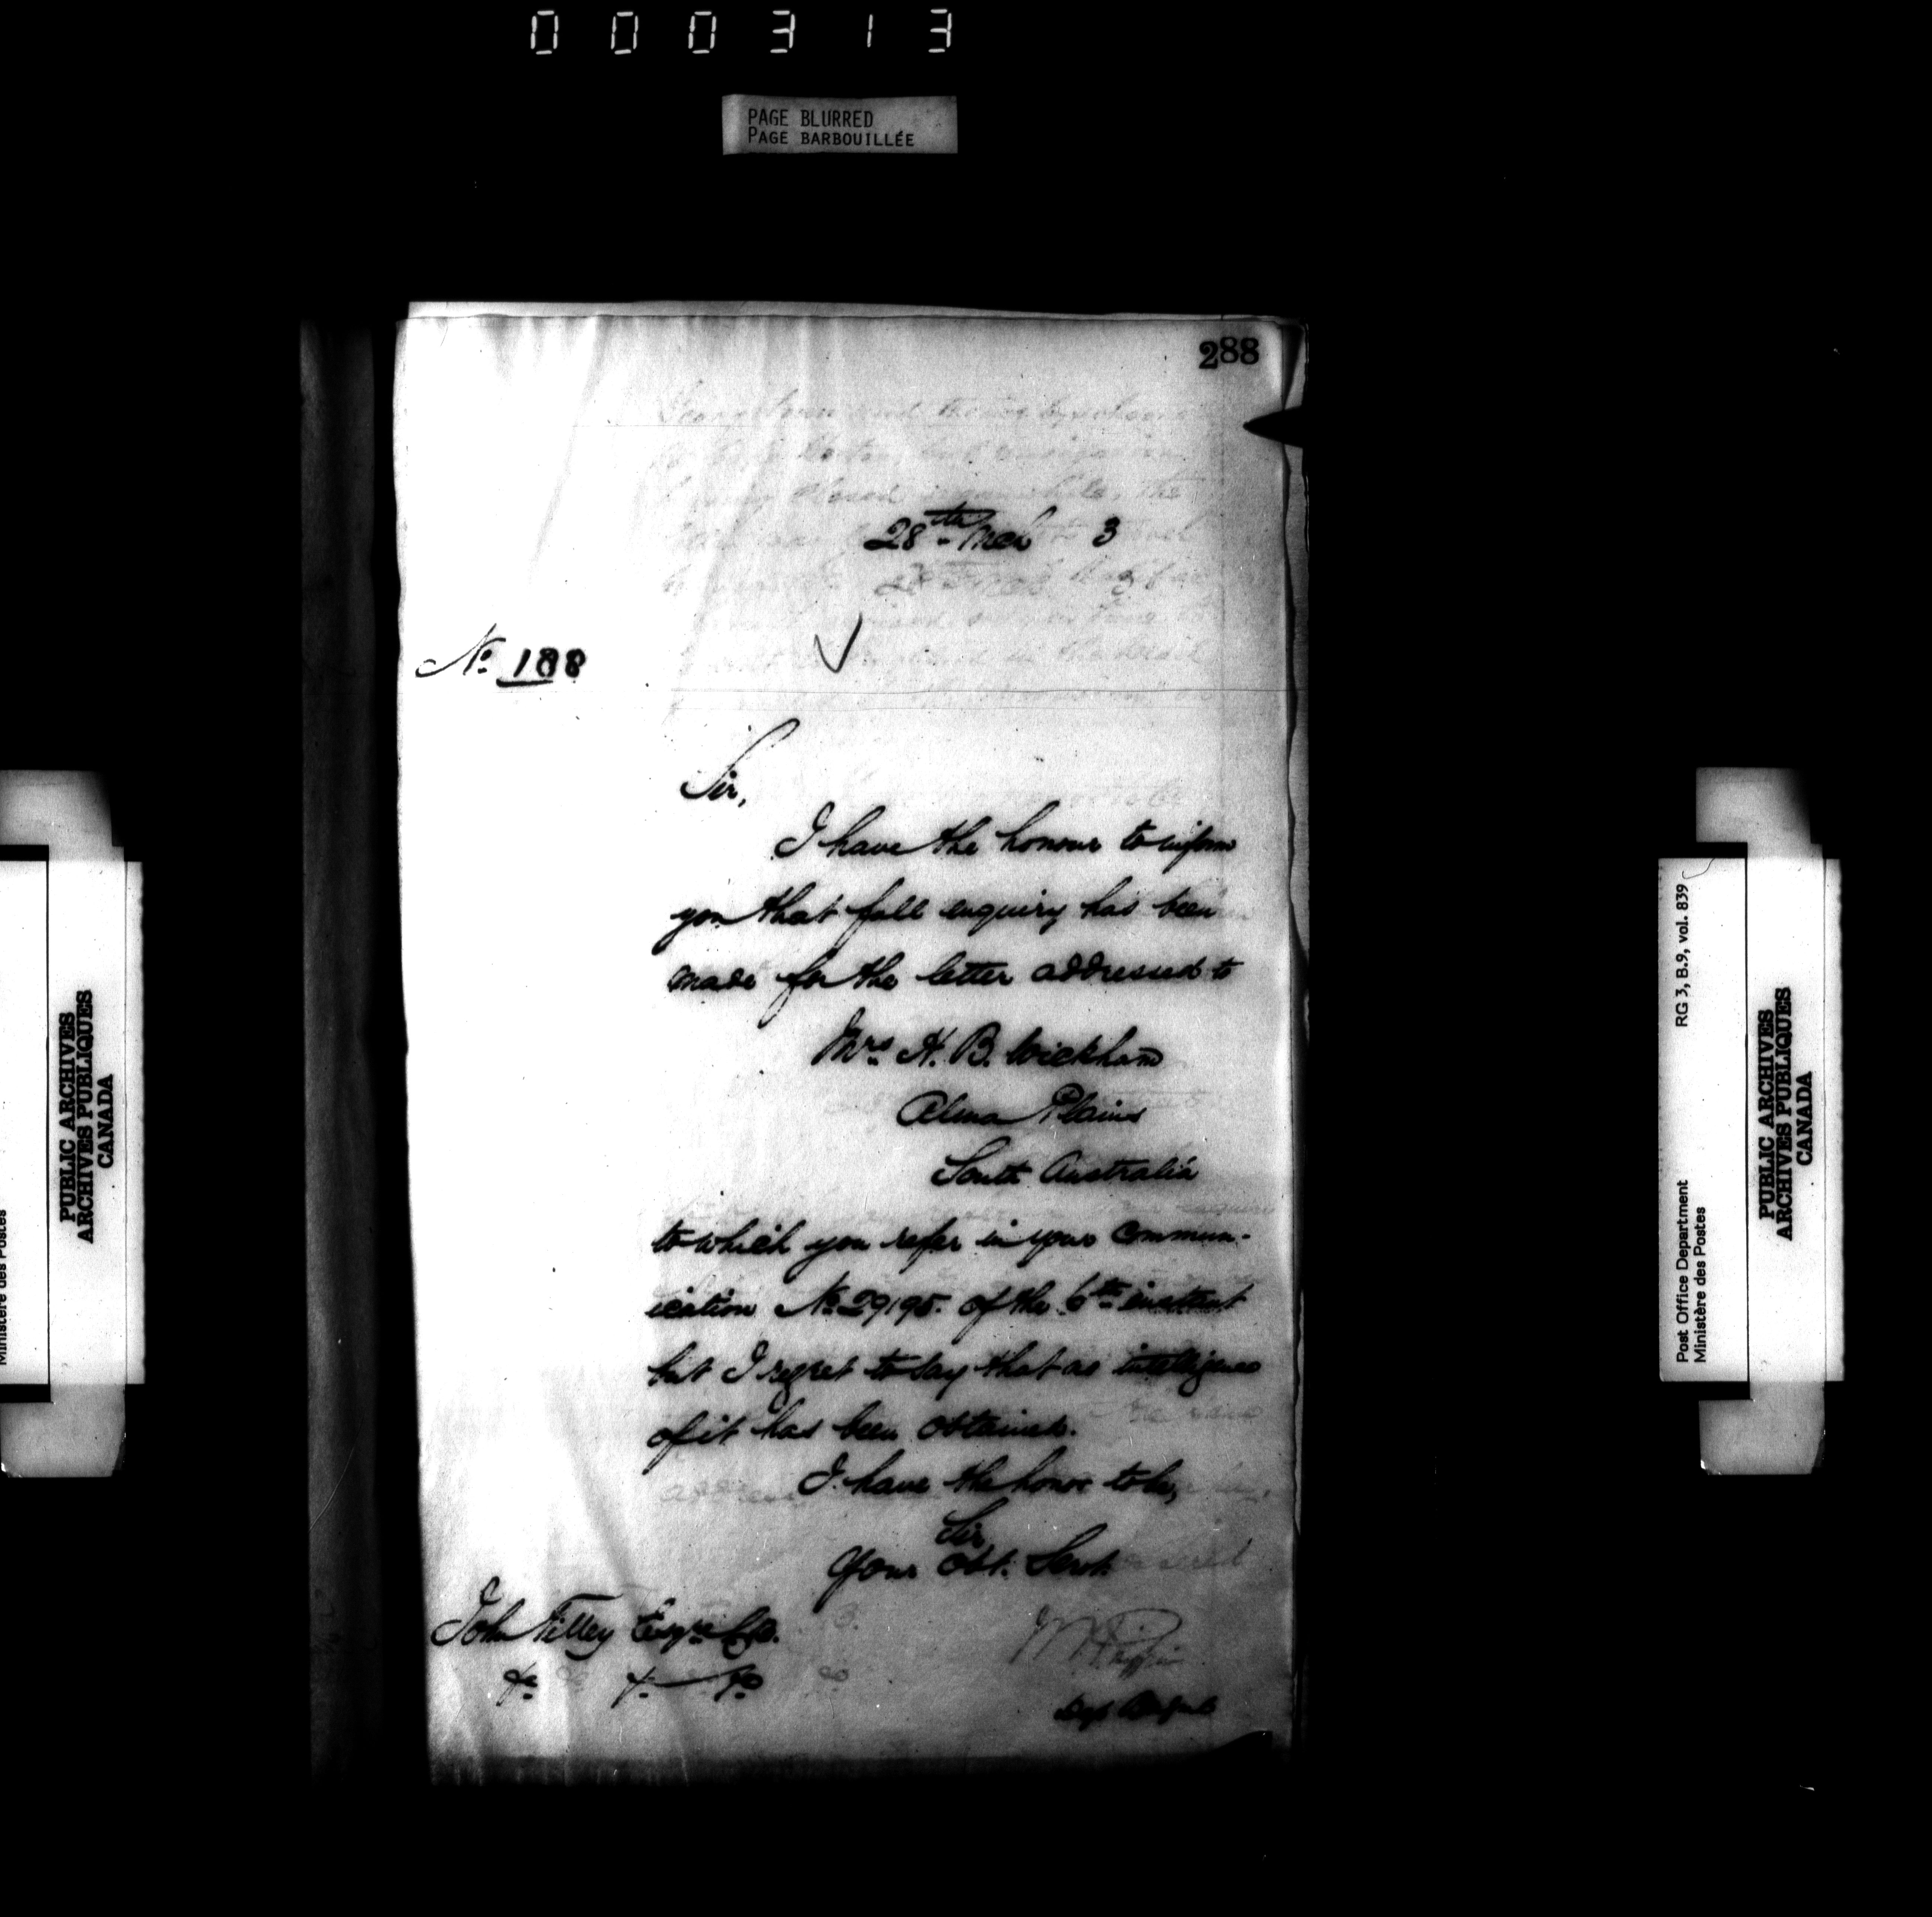 000313
PAGE BLURRED
PAGE BARBOUILLÉE
288
28th Mch 3
No 188
Sir,
I have the honour to inform
you that full enquiry has been
made for the letter addressed to
Mrs H. B. Wickham
Alma Plains
South Australia
to which you refer in your commun-
ication No 29195. of the 6th instant
but I regret to say that no intelligence
of it has been obtained.
I have the honor to be,
Sir
Your Obt. Servt.
John Tilley Esqre
&c &c &c
Ministère des Postes
PUBLIC ARCHIVES
ARCHIVES PUBLIQUES
CANADA
RG 3, B.9, vol. 839
Post Office Department
Ministère des Postes
PUBLIC ARCHIVES
ARCHIVES PUBLIQUES
CANADA